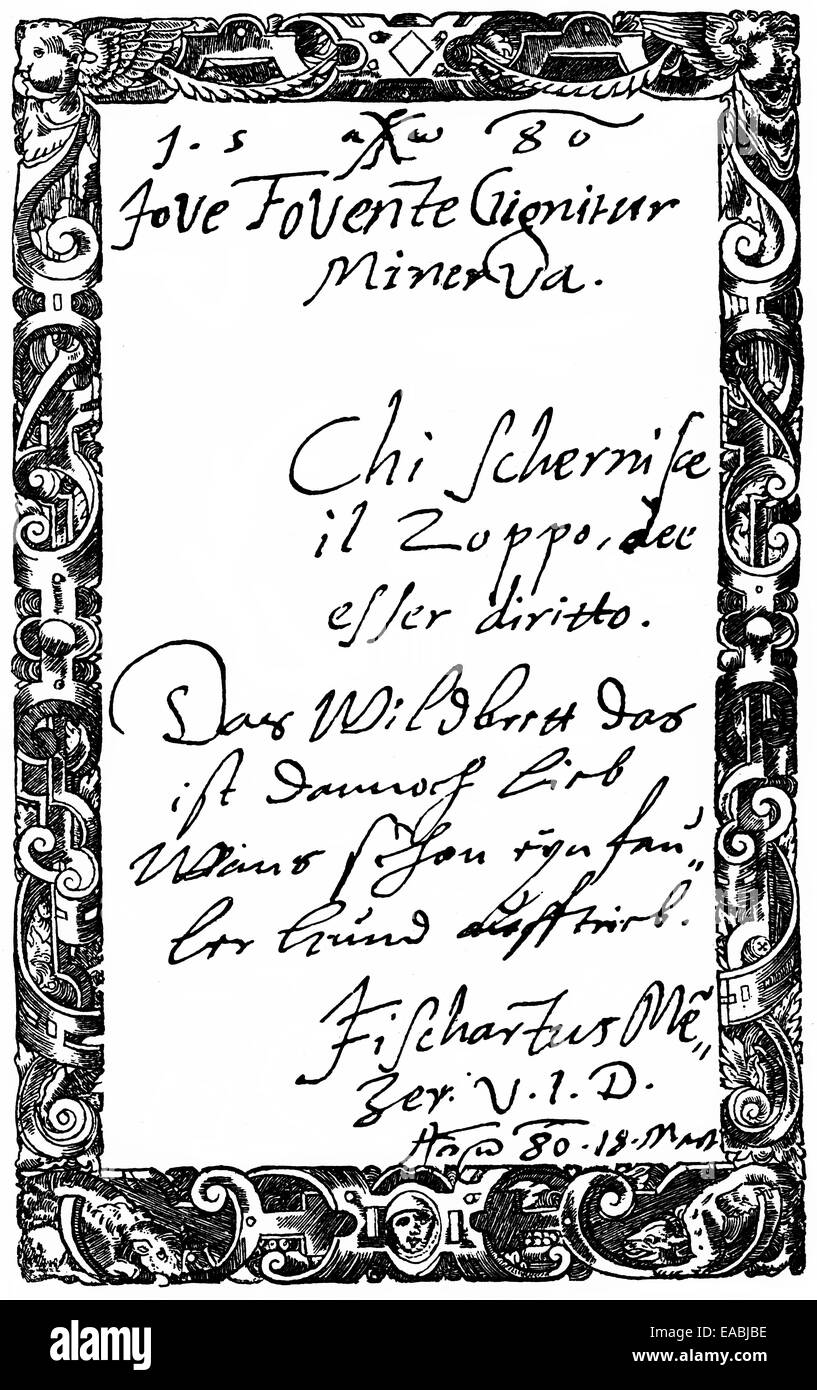 1. 5 80
Jove Fovente Gignitur
Minerva.
Chi scherniſce
il Zoppo, dee
eſſer diritto.
Das Wildbrett das
ist dannoch lieb
Wans schon eyn fau„
ler Hund aufftrieb.
Fiſchartus Mẽ„
zer. V. I. D.
80. 18.
alamy
Image ID: EABJBE
www.alamy.com